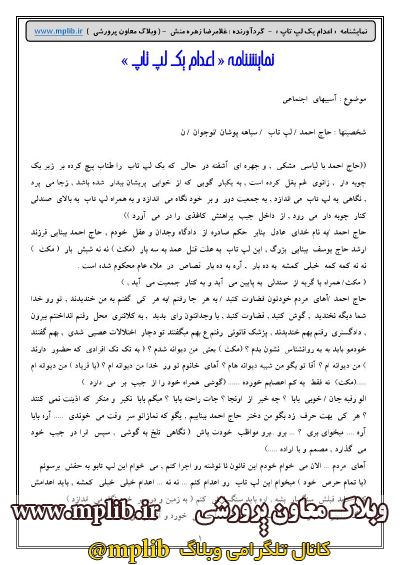 نمایشنامه « اعدام یک لپ تاپ » - گردآورنده : غلامرضا زهره منش - ( وبلاگ معاون پرورشی ) www.mplib.ir
نمایشنامه « اعدام یک لپ تاپ »
موضوع : آسیبهای اجتماعی
شخصیتها : حاج احمد / لپ تاب / سیاهه پوشان /نوجوان / ن
((حاج احمد با لباسی مشکی , و جهره ای آشفته در حالی که یک لپ تاب را طناب پیچ کرده بر زیر یک
چوبه دار , زانوی غم بغل کرده است , به یکبار گویی که از خوابی پریشان بیدار شده باشد , زجا می پرد
, نگاهی به لپ تاب می اندازد , به جمعیت دور و بر خود نگاه می اندازد و به همراه لپ تاب به بالای صندلی
کنار چوبه دار می رود , از داخل جیب پراهنش کاغذی را در می آورد ))
حاج احمد /به نام خدای عادل بنابر حکم صادره از دادگاه وجدان و عقل خودم , حاج احمد بینابی فرزند
ارشد حاج یوسف بینابی بزرگ , این لپ تاب به علت قتل عمد به سه بار (مکث ) نه نه شیش بار ( مکث )
نه نه کمه کمه خیلی کمشه به ده بار . آره به ده بار قصاص در ملاء عام محکوم شده است .
( مکث/ همراه با گریه از صندلی به پایین می آید و به کنار جمعیت می آید . )
حاج احمد /آهای مردم خودتون قضاوت کنید / به هر جا رفتم /به هر کی گفتم به من خندیدند , تو رو خدا
شما دیگه نخندید , گوش کنید , قضاوت کنید , با وجدانتون رای بدید , به کلانتری محل رفتم انداختنم بیرون
, دادگستری رفتم بهم خندیدند, پزشک قانونی رفتم ع بهم میگفتند تو دچار اختلالات عصبی شدی , بهم گفتند
خودمو باید به یه روانشناس نشون بدم ؟ (مکث ) یعنی من دیوانه شدم ؟ ( به تک تک افرادی که حضور دارند
) من دیوانه ام ؟ آقا تو بگو من شبیه دیوانه هام ؟ آهای خانوم تو ور خدا من دیوانه ام ؟ (با فریاد ) من دیوانه ام
.....(مکث) نه فقط یه کم اعصابم خورده ...... (گوشی همراه خود را از جیب بر می دارد )
الو رقیه جان / خوبی بابا ؟ چه خبر از اونجا ؟ جات راحته بابا ؟ میگم بابا نکیر و منکر که اذیتت نمی کنند
؟ هر کی بهت حرف زد بگو من دختر حاج احمد بینابیم , بگو که نمازاتو سر وقت می خوندی ..... آره بابا
آره .... میخوای بری ؟ ... برو ..برو مواظب خودت باش ( نگاهی تلخ به گوشی , سپس انرا در جیب خود
می گذارد , مصمم و با اراده .....)
آهای مردم ... الان می خوام خودم این قانون نا نوشته رو اجرا کنم , می خوام این لپ تابو به حقش برسونم
(با تمام حرص خود ) میخوام این لپ تاپ رو اعدام کنم ... نه نه ... اعدام خیلی خیلی کمشه , باید اعدامش
وبلاگ معاون پرورشی www.mplib.ir
کانال تلگرامی وبلاگ @mplib